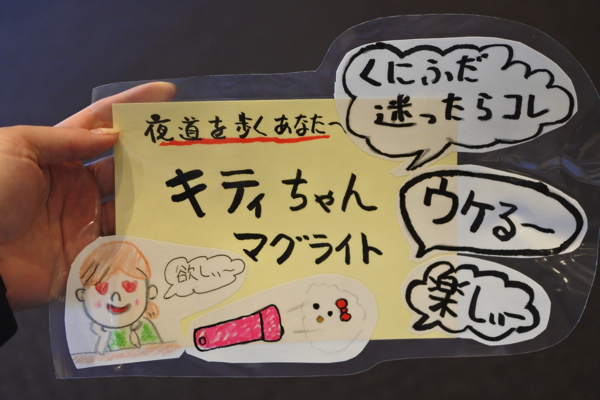 くにふだ
迷ったらコレ
夜道を歩くあなた〜
キティちゃん
マグライト
ウケる〜
楽しぃ〜
欲しぃ〜